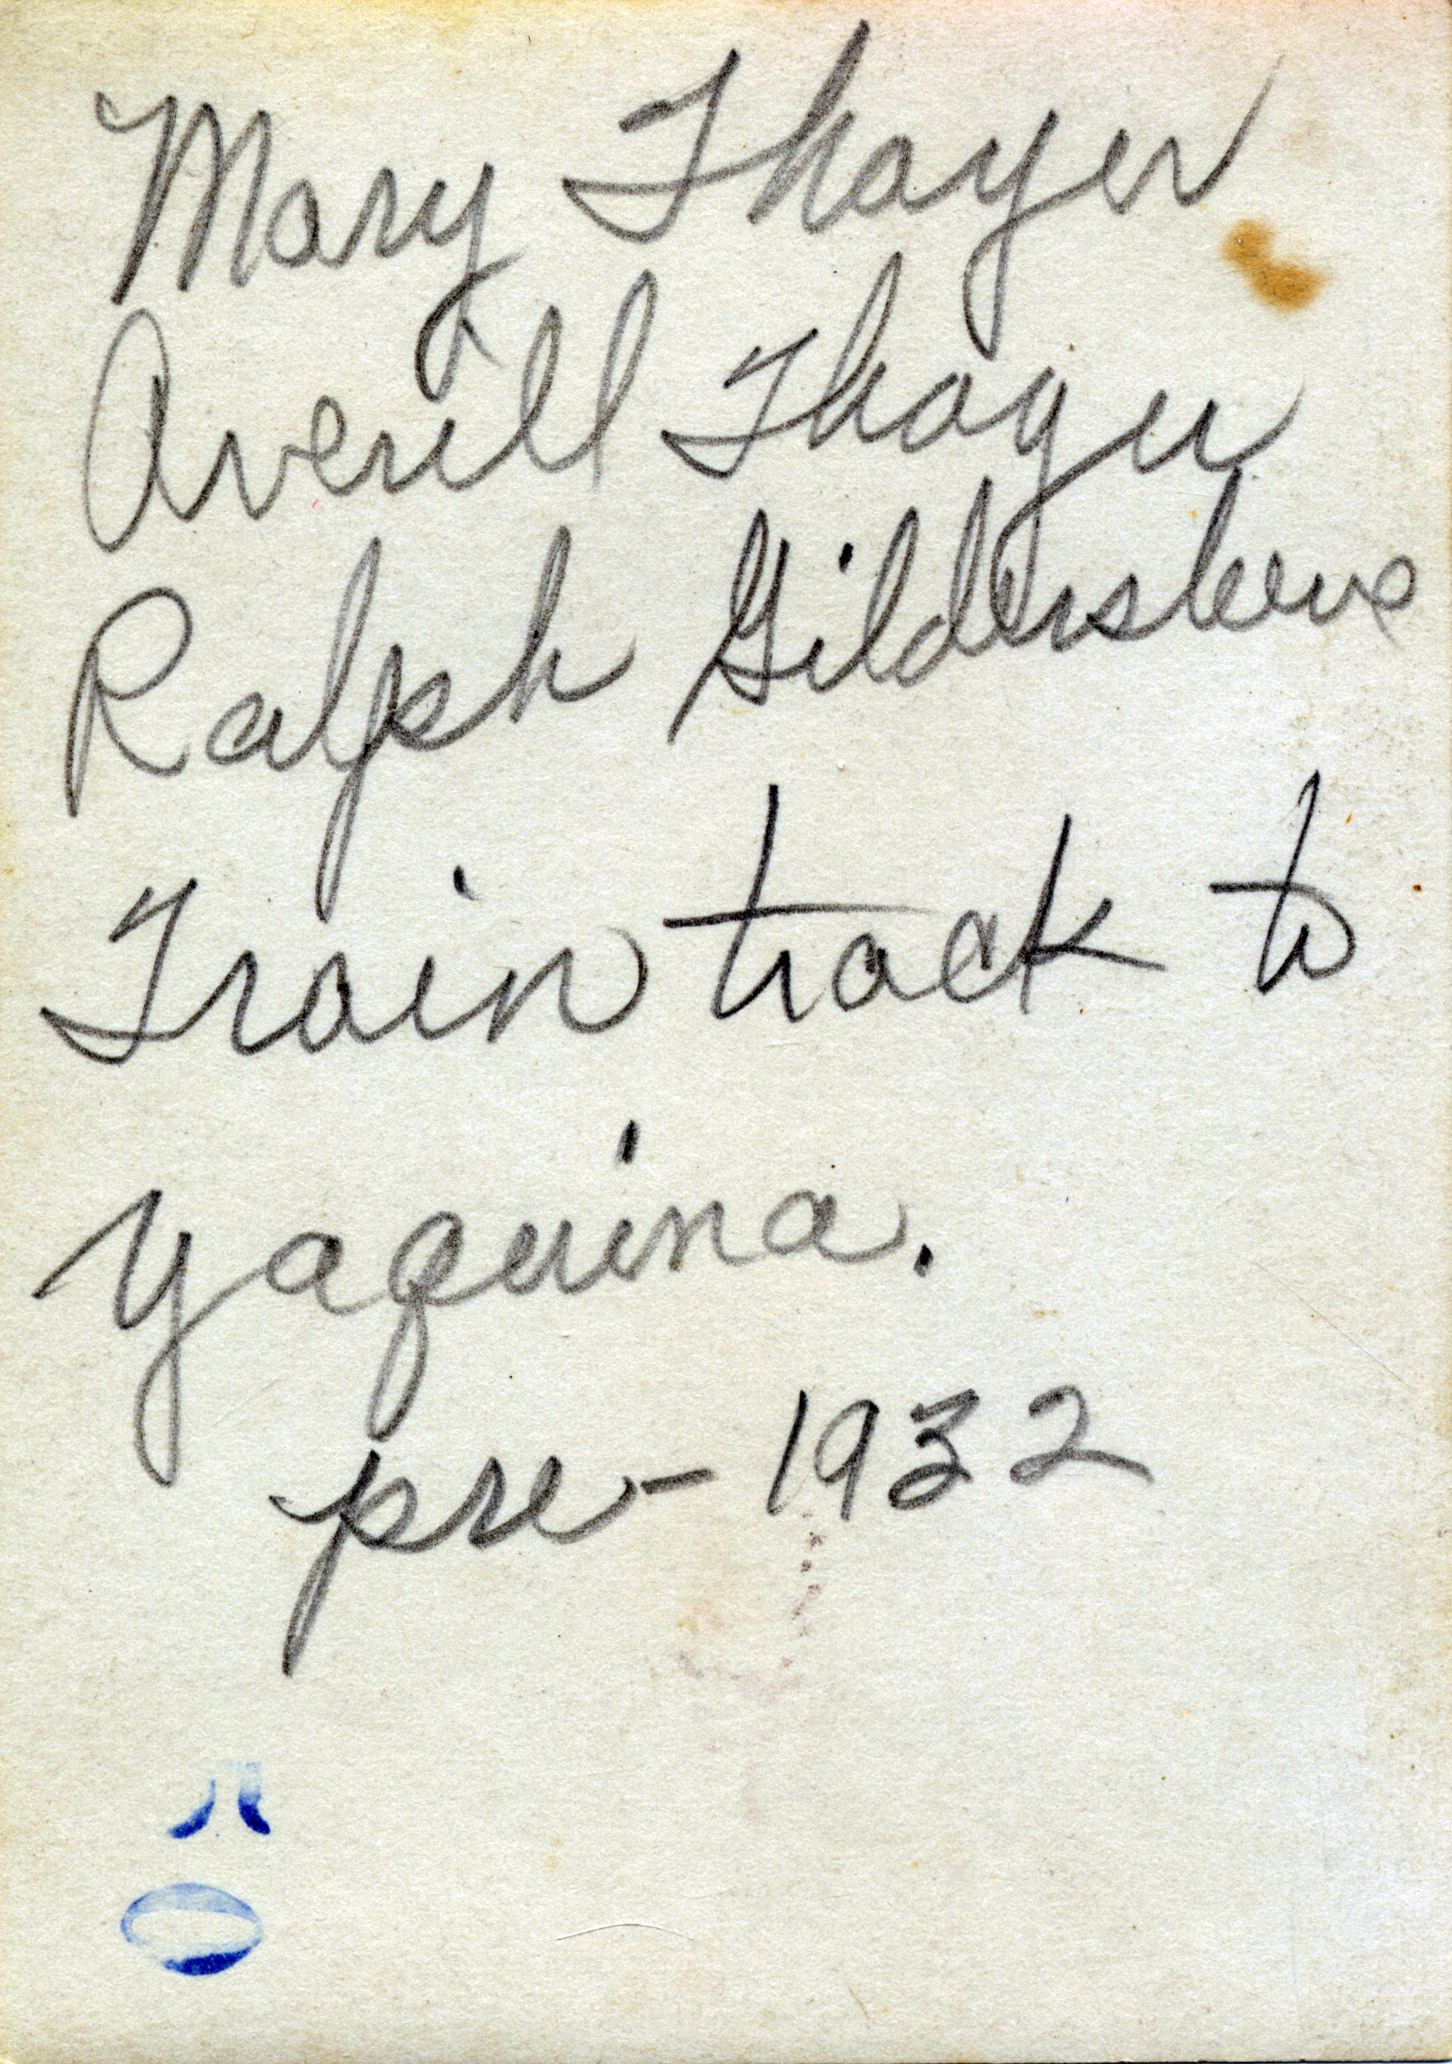 Mary Thayer
Averill Thayer
Ralph Gildersleeve
Train track to
Yaquina.
pre-1932